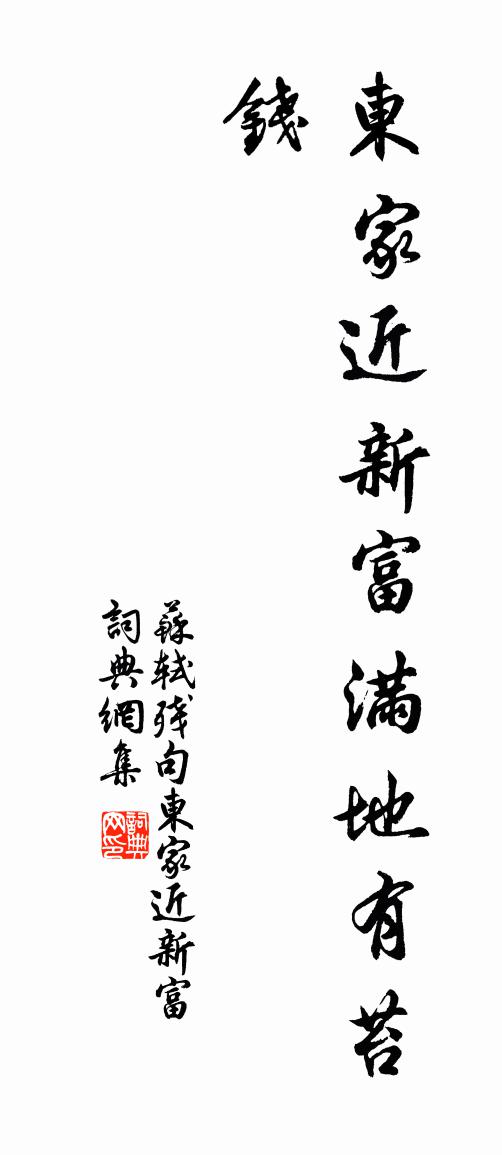 東家近新富滿地有苔
錢
蘇軾残句東家近新富
詞典網集
詞典网印